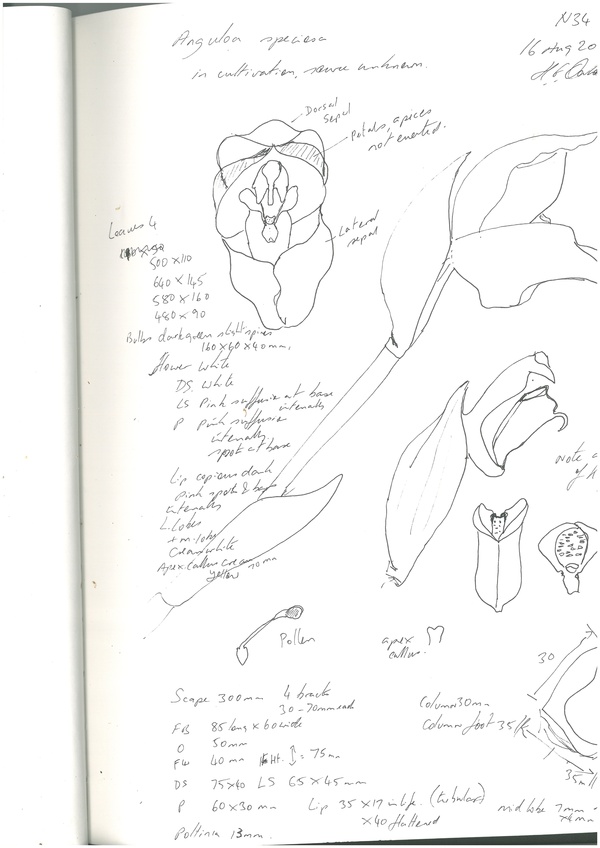 N34
Anguloa speciosa
16 Aug 20
in cultivation, source unknown.
Dorsal
sepal
Petals, apices
not everted.
Lateral
sepal
Leaves 4
500 x 110
640 x 145
580 x 160
480 x 90
Bulbs dark green slight spines
160 x 60 x 40 mm.
flower white
DS white
LS Pink suffusion at base
internally
P pink suffusion
internally
spots at base
Lip copious dark
pink spots & bars
internally
L. lobes
+ m. lobe
Cream white
Apex. Callus cream
yellow
70 mm
note
Pollen
apex
callus.
30
Scape 300mm 4 bracts
30-70mm each
Column 30mm
Column foot 35
FB 85 long x 60 wide
O 50mm
FW 40mm Ht. = 75mm
35
DS 75 x 40 LS 65 x 45 mm
P 60 x 30 mm Lip 35 x 17 in life. (tubular)
x 40 flattened
mid lobe 7mm
Pollinia 13mm.